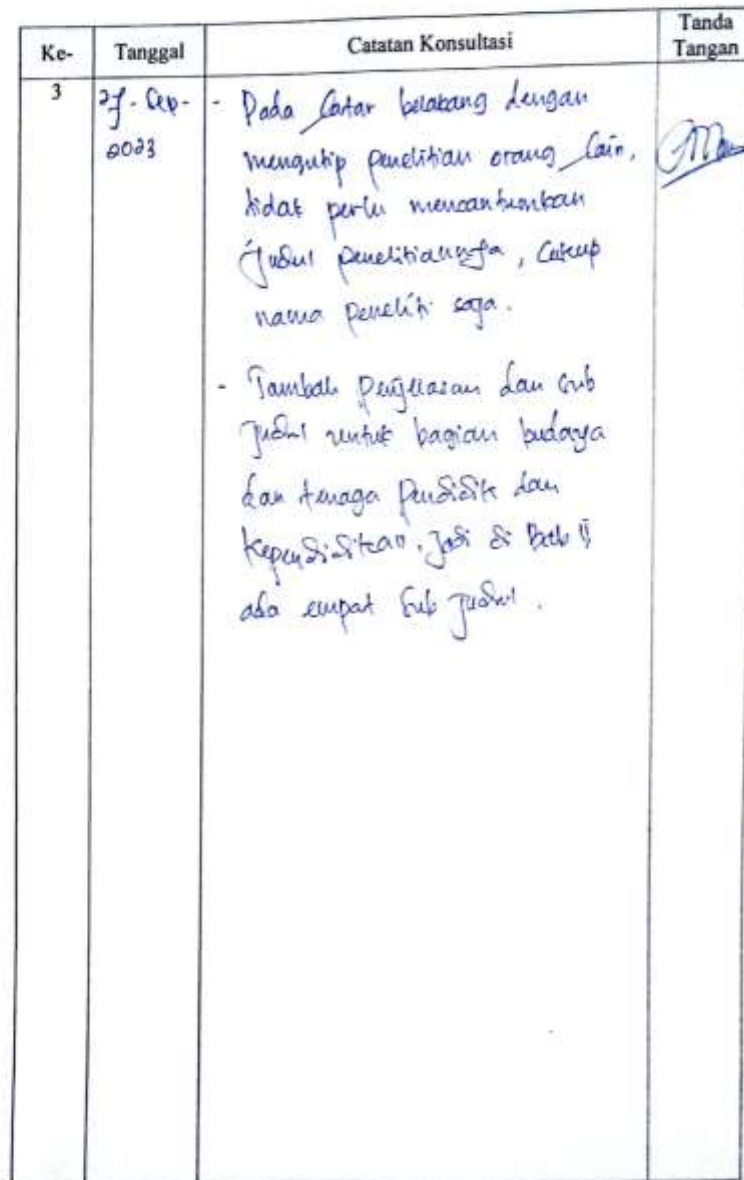 Ke- Tanggal Catatan Konsultasi Tanda Tangan
3 27 - Sep - 2023
- Pada Latar belakang dengan
mengutip penelitian orang lain,
tidak perlu mencantumkan
judul penelitiannya, cukup
nama peneliti saja.
- Tambah penjelasan dan sub
judul untuk bagian budaya
dan tenaga pendidik dan
kependidikan. Jadi di Bab II
ada empat sub judul.